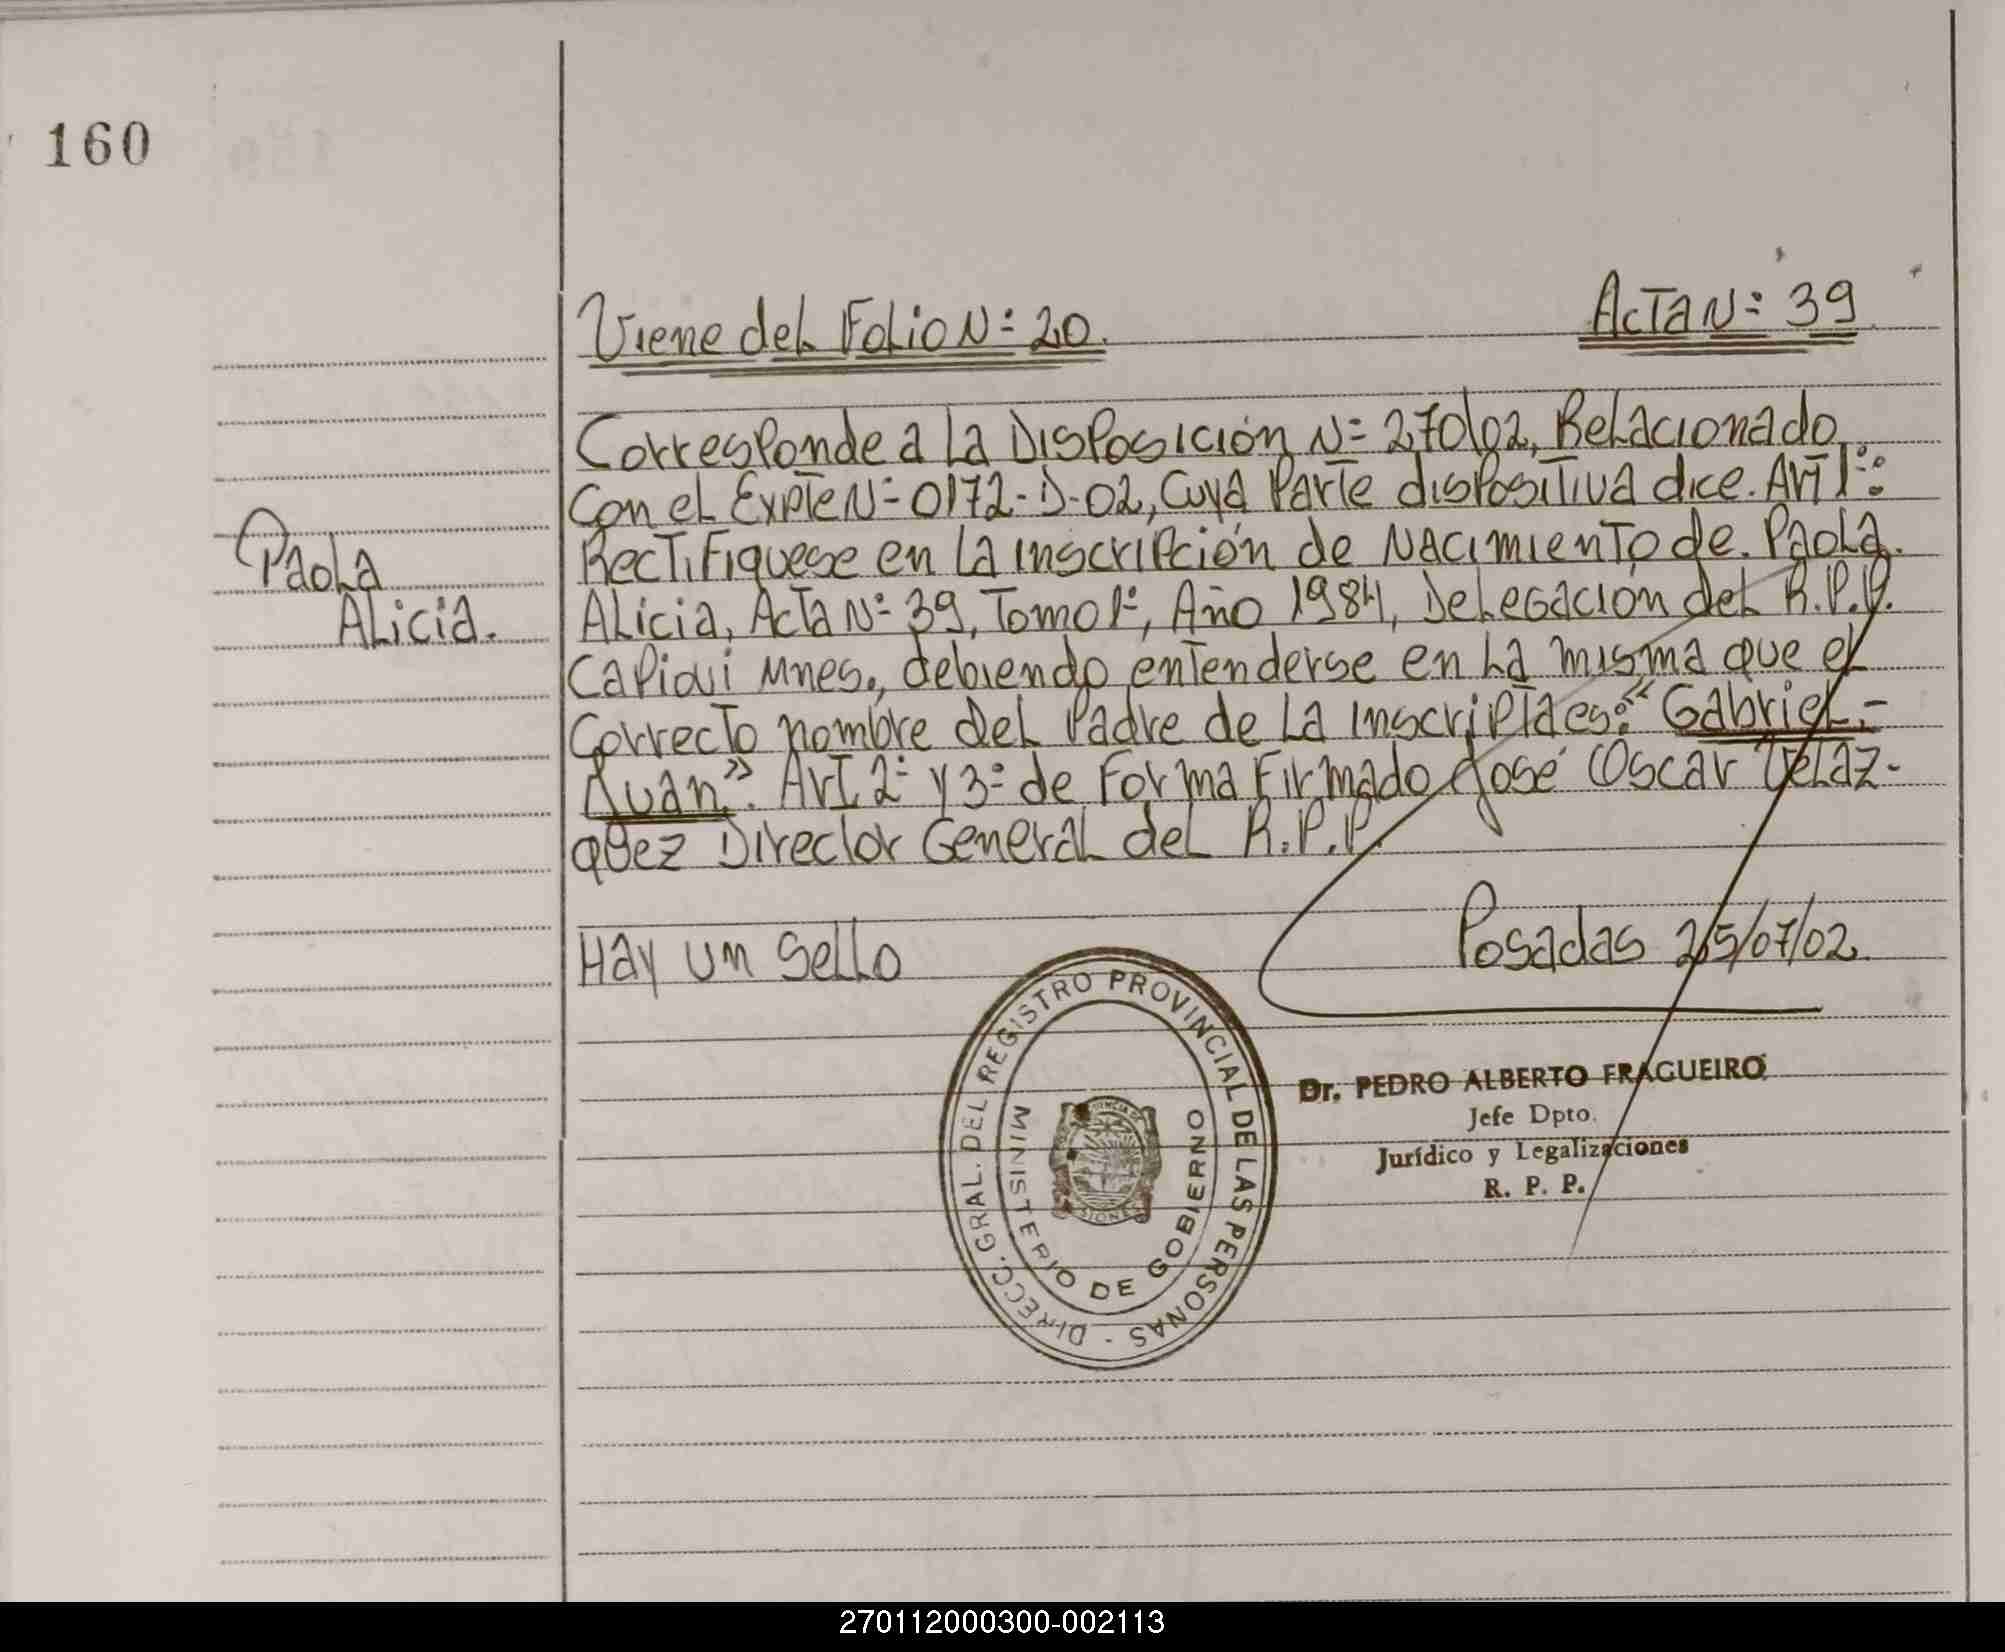 160
Viene del Folio Nº 20.
Acta Nº 39
Corresponde a la Disposición Nº 270/02, Relacionado
Con el Expte Nº 0172-D-02, Cuya Parte dispositiva dice. Art 1º:
Rectifiquese en la inscripción de Nacimiento de. Paola.
Alicia, Acta Nº 39, Tomo 1º, Año 1984, Delegación del R.P.P.
Capiovi Mnes., debiendo entenderse en la misma que el
Correcto nombre del Padre de la inscripta es: "Gabriel.-
Juan". Art 2º y 3º de Forma Firmado José Oscar Velaz-
quez Director General del R.P.P.
Paola
Alicia.
Hay un sello
Posadas 25/07/02
DIRECC. GRAL. DEL REGISTRO PROVINCIAL DE LAS PERSONAS -
MINISTERIO DE GOBIERNO
Dr. PEDRO ALBERTO FRAGUEIRO
Jefe Dpto.
Jurídico y Legalizaciones
R. P. P.
270112000300-002113